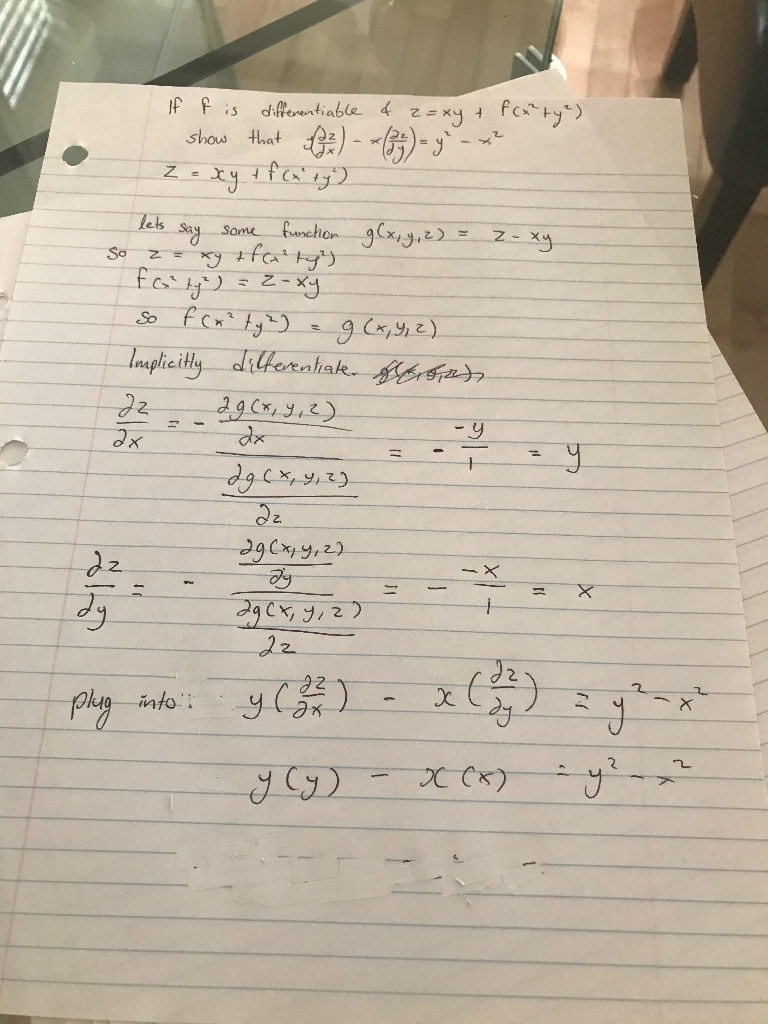 If f is differentiable & z = xy + f(x²+y²)
show that y(∂z/∂x) - x(∂z/∂y) = y² - x²
z = xy + f(x²+y²)
lets say some function g(x,y,z) = z - xy
so z = xy + f(x²+y²)
f(x²+y²) = z - xy
so f(x²+y²) = g(x,y,z)
Implicitly differentiate.
∂z/∂x = - (∂g(x,y,z)/∂x)/(∂g(x,y,z)/∂z) = - -y/1 = y
∂z/∂y = - (∂g(x,y,z)/∂y)/(∂g(x,y,z)/∂z) = - -x/1 = x
plug into: y(∂z/∂x) - x(∂z/∂y) = y² - x²
y(y) - x(x) = y² - x²